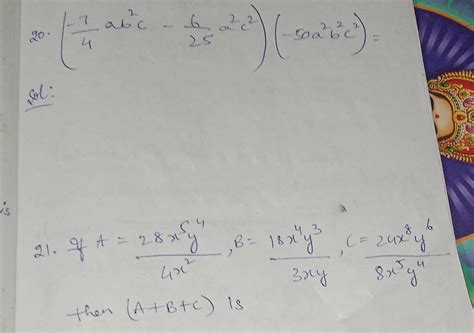 20. (-7/4 ab²c - 6/25 a²c²) (-50a²b²c²) =
Sol:
is
21. If A = 28x⁵y⁴/4x², B = 18x⁴y³/3xy, C = 24x⁸y⁶/8x⁵y⁴
then (A+B+C) is